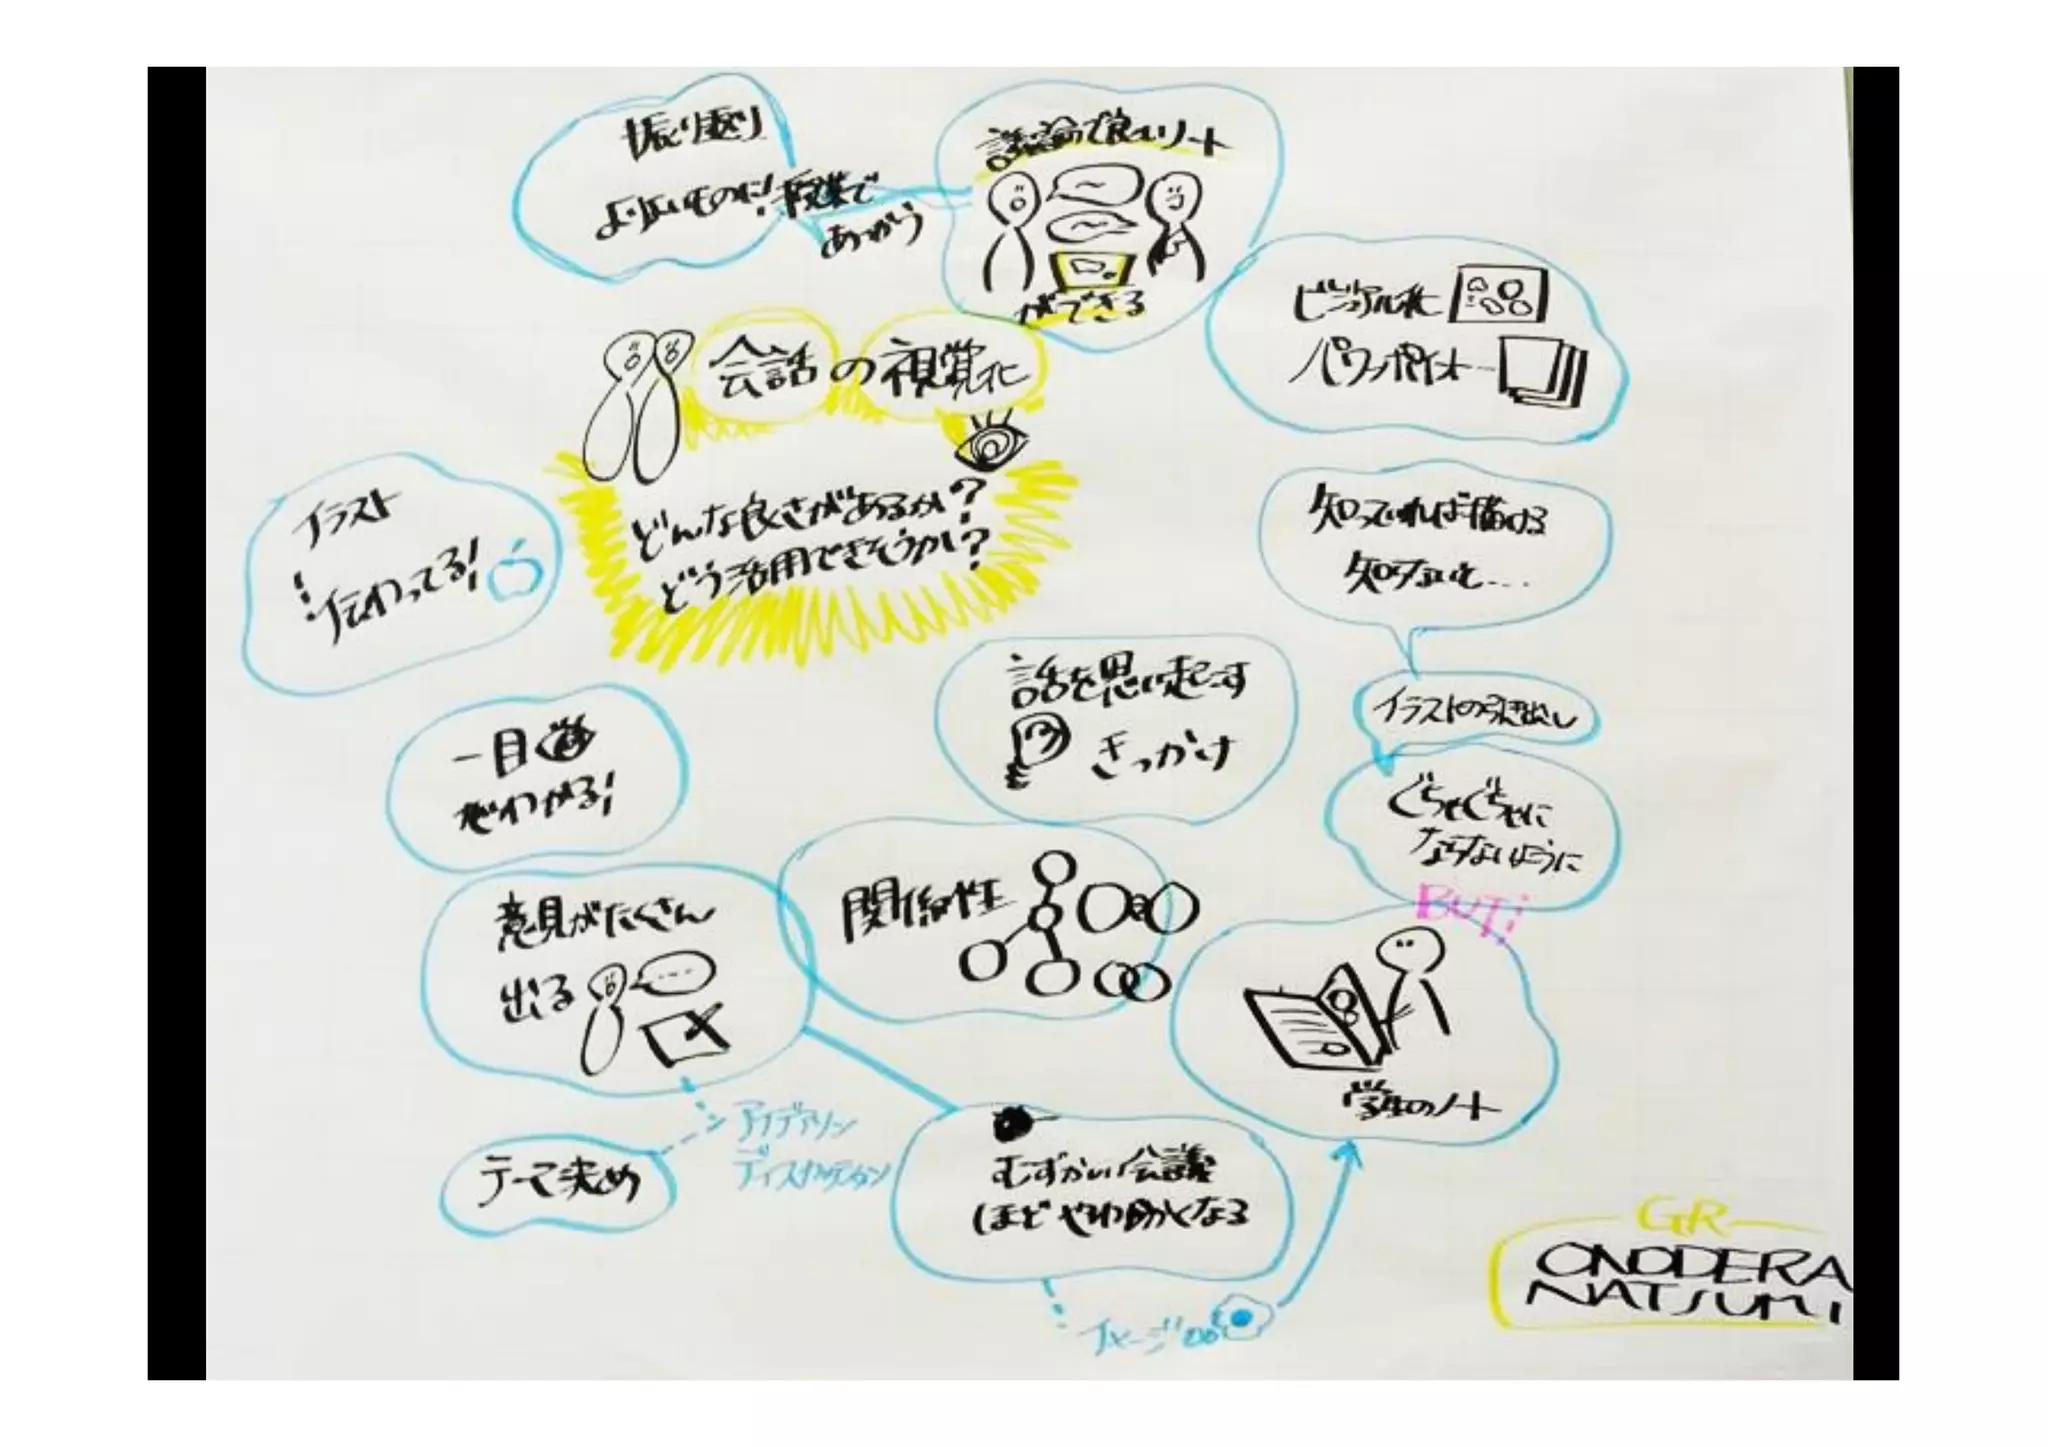 振り返り
よりよいものに!授業で
あつかう
議論で良いノート
ができる
ビジュアル化
パワーポイント…
会話の視覚化
どんな良さがあるか?
どう活用できそうか?
イラスト
伝わってる!
知っていれば描ける
知らないと…
イラストの引き出し
ぐちゃぐちゃに
ならないように
BUT!
話を思い起こす
きっかけ
一目
でわかる!
関係性
意見がたくさん
出る
学生のノート
アイデアソン
テーマ決め
むずかしい会議
ほどやわらかくなる
イメージ
GR
ONODERA
NATSUMI